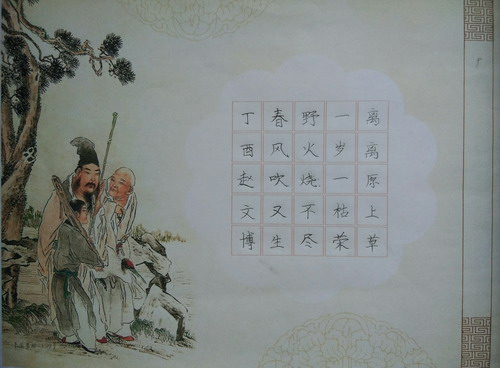 离离原上草
一岁一枯荣
野火烧不尽
春风吹又生
丁酉赵文博